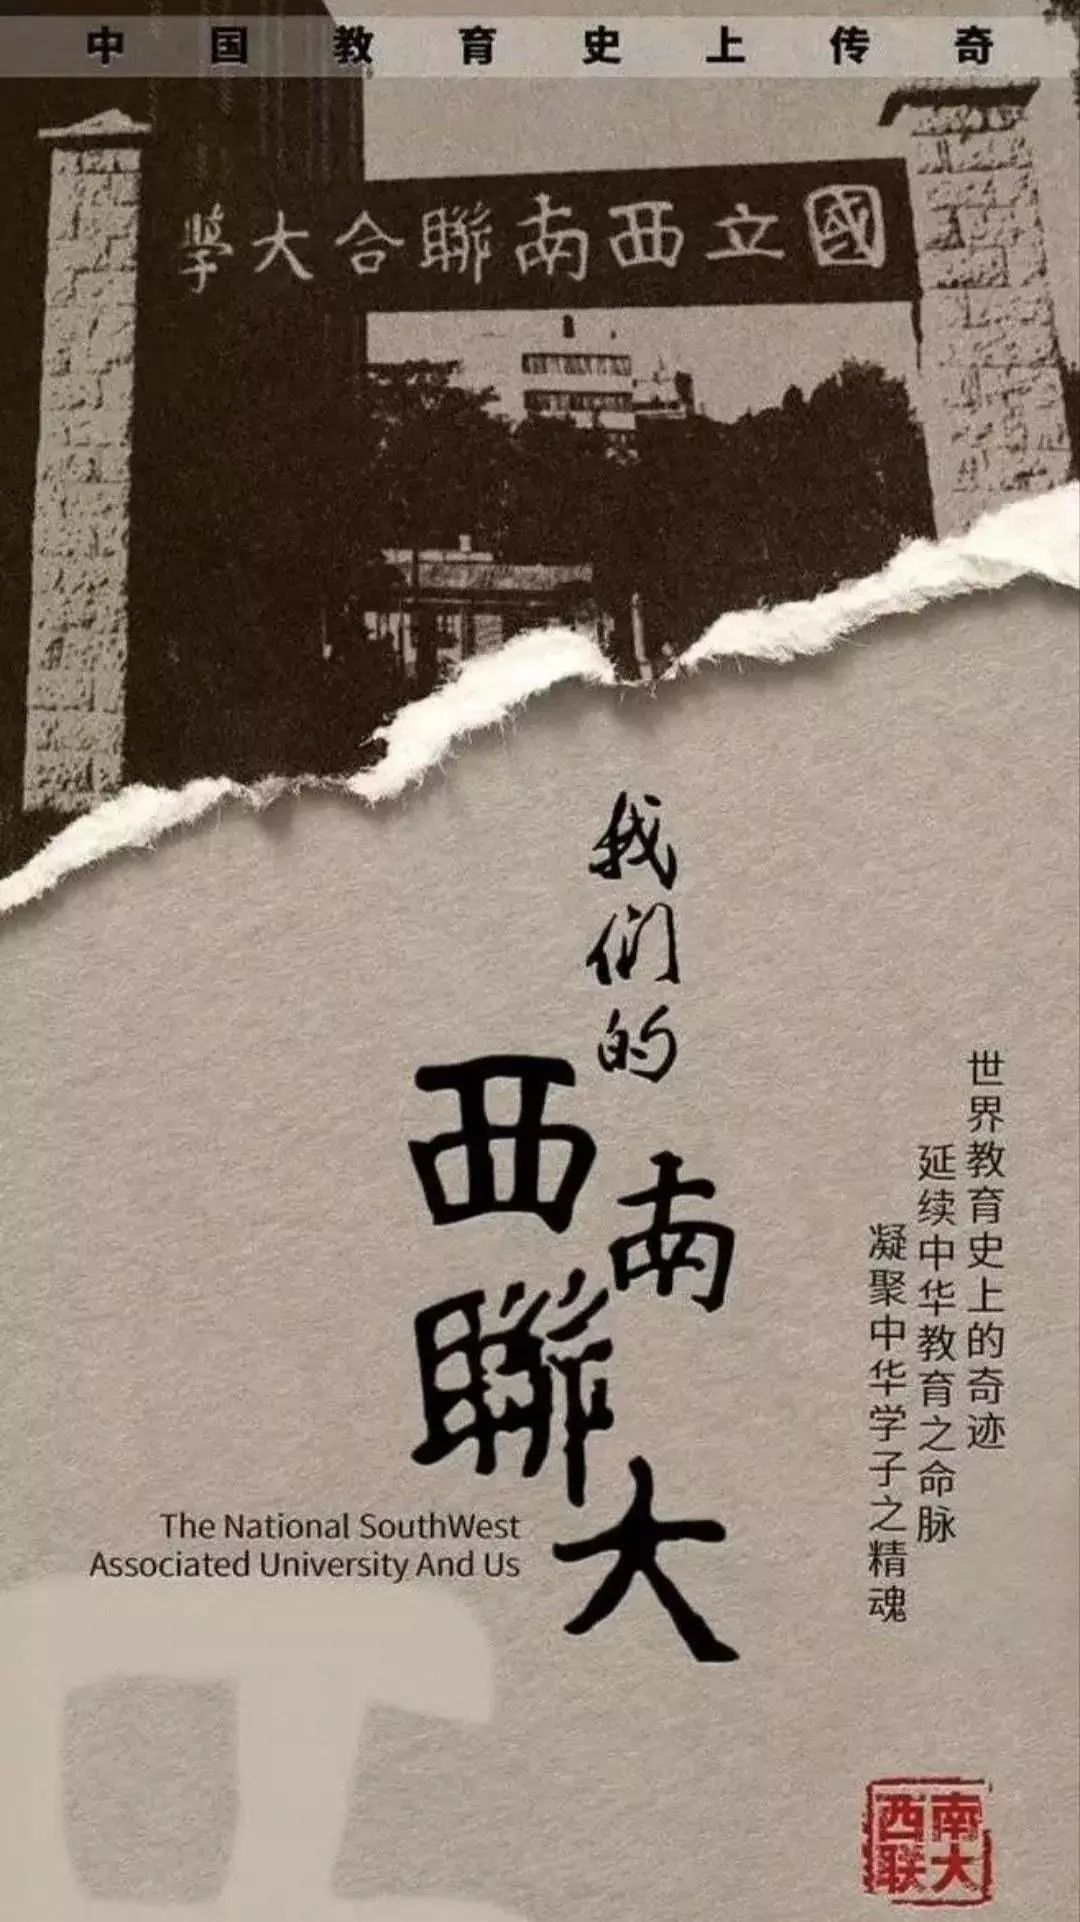 中国教育史上传奇
國立西南聯合大學
我们的
西南聯大
世界教育史上的奇迹
延续中华教育之命脉
凝聚中华学子之精魂
The National SouthWest
Associated University And Us
西南
联大